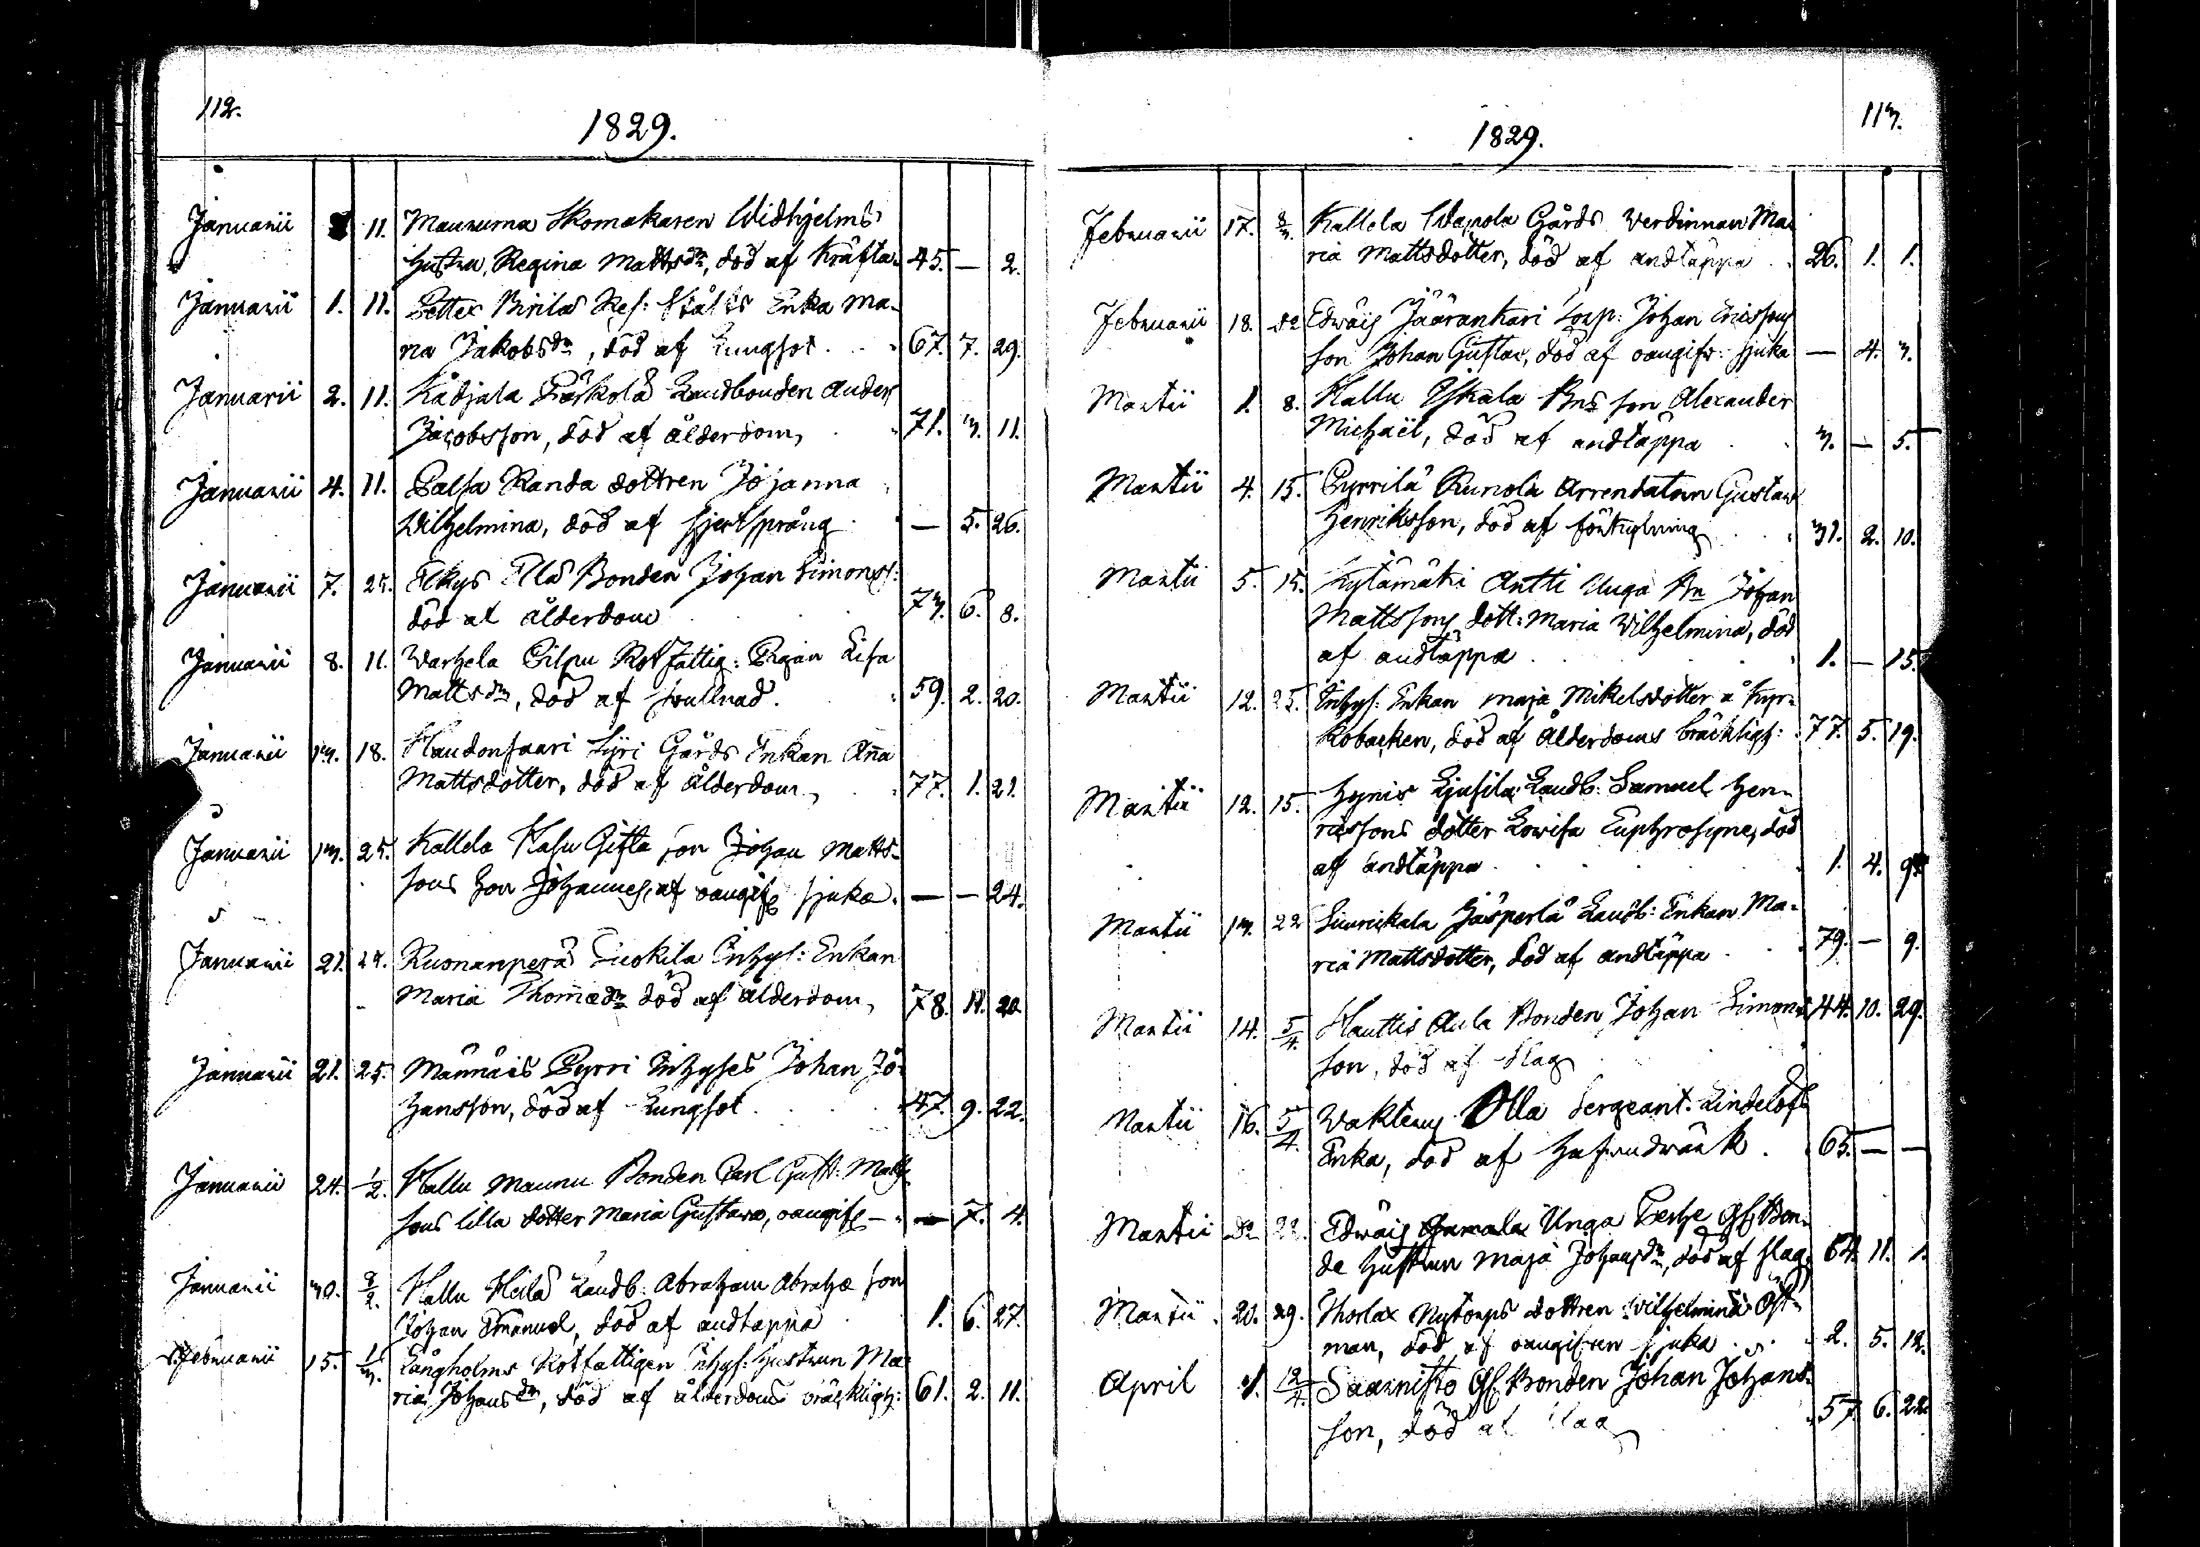 112.
1829.
Januarii 11. Maunuma Skomakaren Widhjelms
Hustru, Regina Mattsdr, död af Kräfta 45. — 2.
Januarii 1. 11. Petter Pirilas Enka Ma-
ria Jakobsdr, död af Lungsot 67. 7. 29.
Januarii 2. 11. Kådjala Landbonden Anders
Jacobsson, död af ålderdom, 71. 3. 11.
Januarii 4. 11. Palsa Randa dottren Johanna
Wilhelmina, död af hjertsprång — 5. 26.
Januarii 7. 25. Ellä Bonden Johan Simonss:
död af ålderdom 73. 6. 8.
Januarii 8. 11. Warhela Pilpu Rotfattig: Pigan Lisa
Mattsdr, död af swullnad. 59. 2. 20.
Januarii 13. 18. Haudonsaari Syri Gårds Enkan Aña
Mattsdotter, död af ålderdom, 77. 1. 21.
Januarii 13. 25. Kallela Kasu Gifta son Johan Matts-
sons son Johannes, af oangifv sjuka. — — 24.
Januarii 21. Ruonanperä Inhys: Enkan
Maria Thomædr död af ålderdom, 78. 11. 20.
Januarii 21. 25. Männäis Pyrri Inhyses Johan Jo-
hansson, död af Lungsot 47. 9. 22.
Januarii 24. 1/2. Kallu Maunu Bonden Carl Gust: Matts
sons lilla dotter Maria Gustava, oangifv — — 7. 4.
Januarii 30. 8/2. Kallu Heilä Landb: Abraham Abrahæ son
Johan Emanuel, död af andtäppa 1. 6. 27.
Februarii 15. 1/3. Långholms Rotfattigen Inhys: Hustrun Ma-
ria Johansdr, död af ålderdoms bräcklighz: 61. 2. 11.
113.
1829.
Februarii 17. 8/3. Kallela Wapola Gårds Werdinnan Ma
ria Mattsdotter, död af andtäppa 26. 1. 1.
Februarii 18. do Edwäis Jäärankari Torp: Johan Ericssons
son Johan Gustav, död af oangifv: sjuka — 4. 3.
Martii 1. 8. Kallu Yskala Bns son Alexander
Michaël, död af andtäppa 3. — 5.
Martii 4. 15. Pyrrilä Runola Arrendatorn Gustaw
Henriksson, död af förkylning 31. 2. 10.
Martii 5. 15. Kylämäki Antti Unga Bn Johan
Mattssons dott: Maria Wilhelmina, död
af andtäppa 1. — 15.
Martii 12. 25. Inhys: Enkan Maja Mikelsdotter å Kyr-
kobacken, död af Ålderdoms bräcklighz: 77. 5. 19.
Martii 12. 15. Landb: Samuel Hen-
ricssons dotter Lovisa Euphrosyne, död
af andtäppa 1. 4. 9
Martii 13. 22 Jäsperlä Landb: Enkan Ma-
ria Mattsdotter, död af andtäppa 79. — 9.
Martii 14. 5/4. Kauttis Aula Bonden Johan Simons 44. 10. 29.
son, död af slag
Martii 16. 5/4. Olla Sergeant. Lindelöfs
Enka, död af hufvudwärk. 65. — —
Martii do 22. Edwäis Unga Perhe Gl Bon-
de hustrun Maja Johansdr, död af slag 64. 11. 1.
Martii 20. 29. Thorlax Nytorps dottren Wilhelmina Öst-
man, död af oangifven sjuka 2. 5. 12.
April 1. 12/4. Saaristo Gl Bonden Johan Johans-
son, död af slag 57. 6. 22.